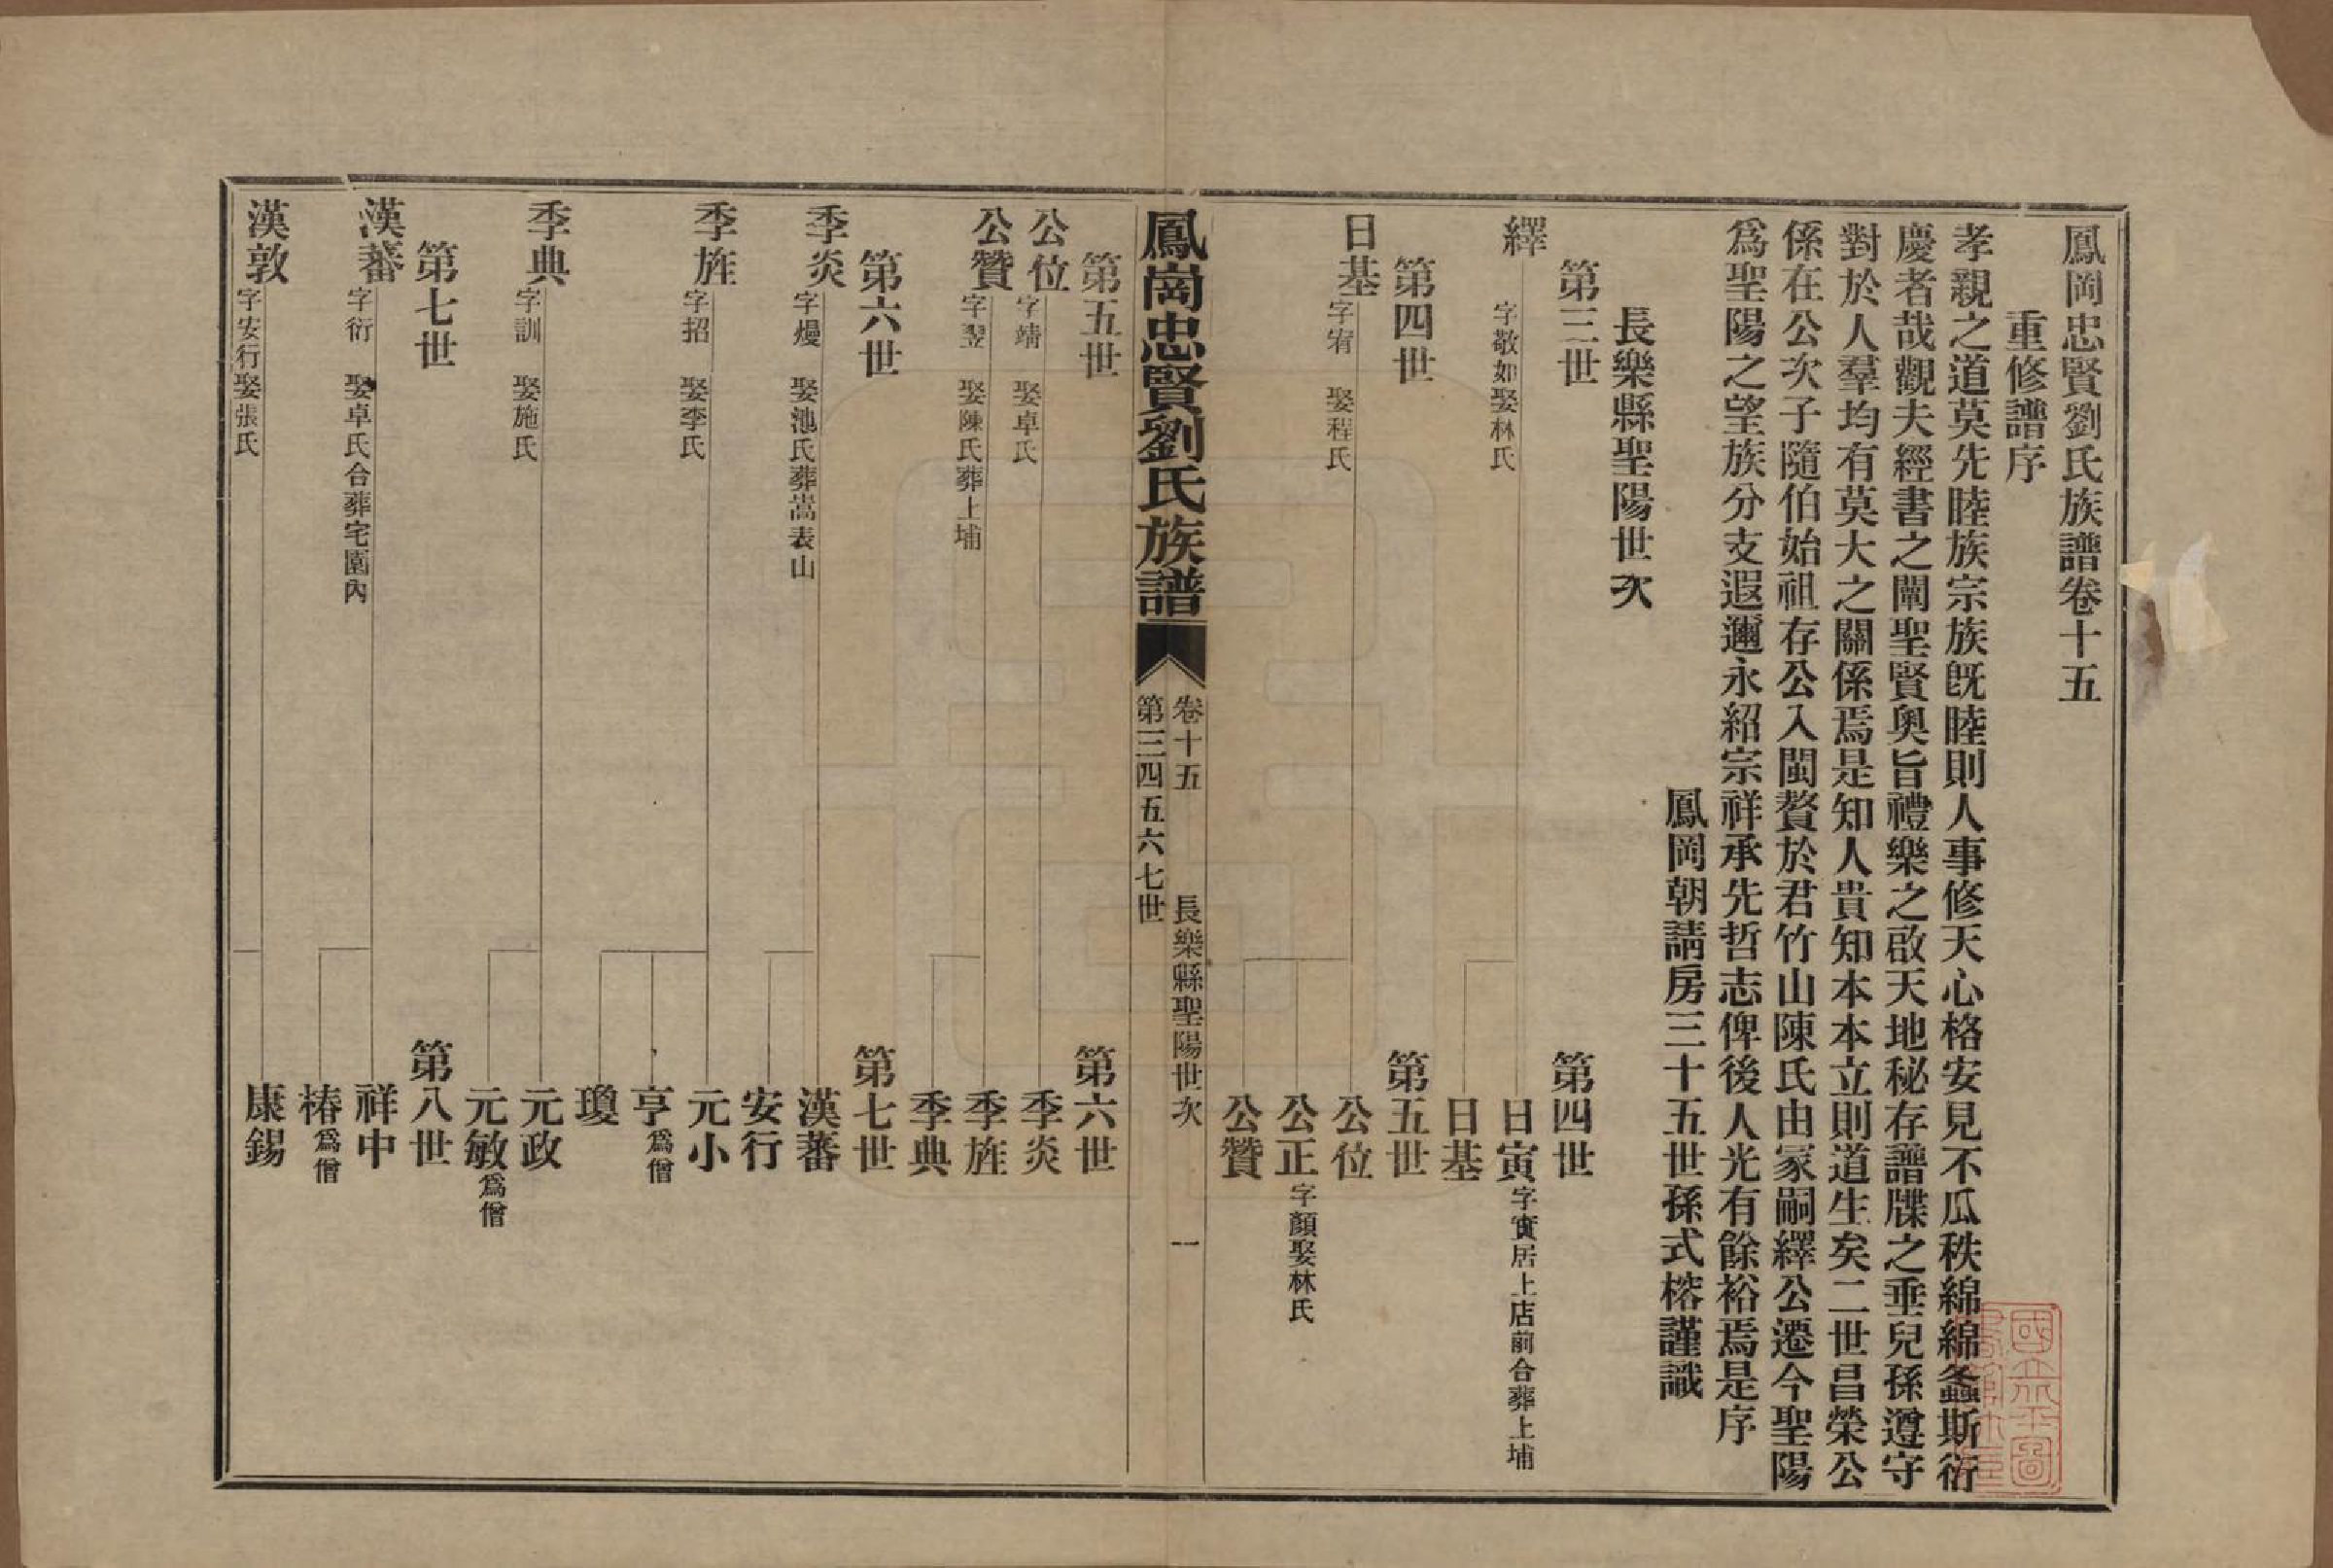 鳳岡忠賢劉氏族譜卷十五
重修譜序
孝親之道莫先睦族宗族既睦則人事修天心格安見不瓜秩綿綿螽斯衍
慶者哉觀夫經書之闡聖賢奧旨禮樂之啟天地秘存譜牒之垂兒孫遵守
對於人羣均有莫大之關係焉是知人貴知本本立則道生矣二世昌榮公
係在公次子隨伯始祖存公入閩贅於君竹山陳氏由冢嗣繹公遷今聖陽
爲聖陽之望族分支遐邇永紹宗祥承先哲志俾後人光有餘裕焉是序
鳳岡朝請房三十五世孫式榕謹識
長樂縣聖陽世次
第三世 第四世
繹 字敬如娶林氏 日寅 字實居上店前合葬上埔
日基
第四世 第五世
日基 字宥 娶程氏 公位
公正 字顏娶林氏
公贊
鳳崗忠賢劉氏族譜 卷十五 長樂縣聖陽世次 一
第三四五六七世
第五世 第六世
公位 字靖 娶卓氏 季炎
公贊 字翌 娶陳氏葬上埔 季旌
季典
第六世 第七世
季炎 字熳 娶池氏葬嵩表山 漢蕃
安行
季旌 字招 娶李氏 元小
亨 爲僧
瓊
季典 字訓 娶施氏 元政
元敏 爲僧
第七世 第八世
漢蕃 字衍 娶卓氏合葬宅園內 祥中
椿 爲僧
漢敦 字安行娶張氏 康錫